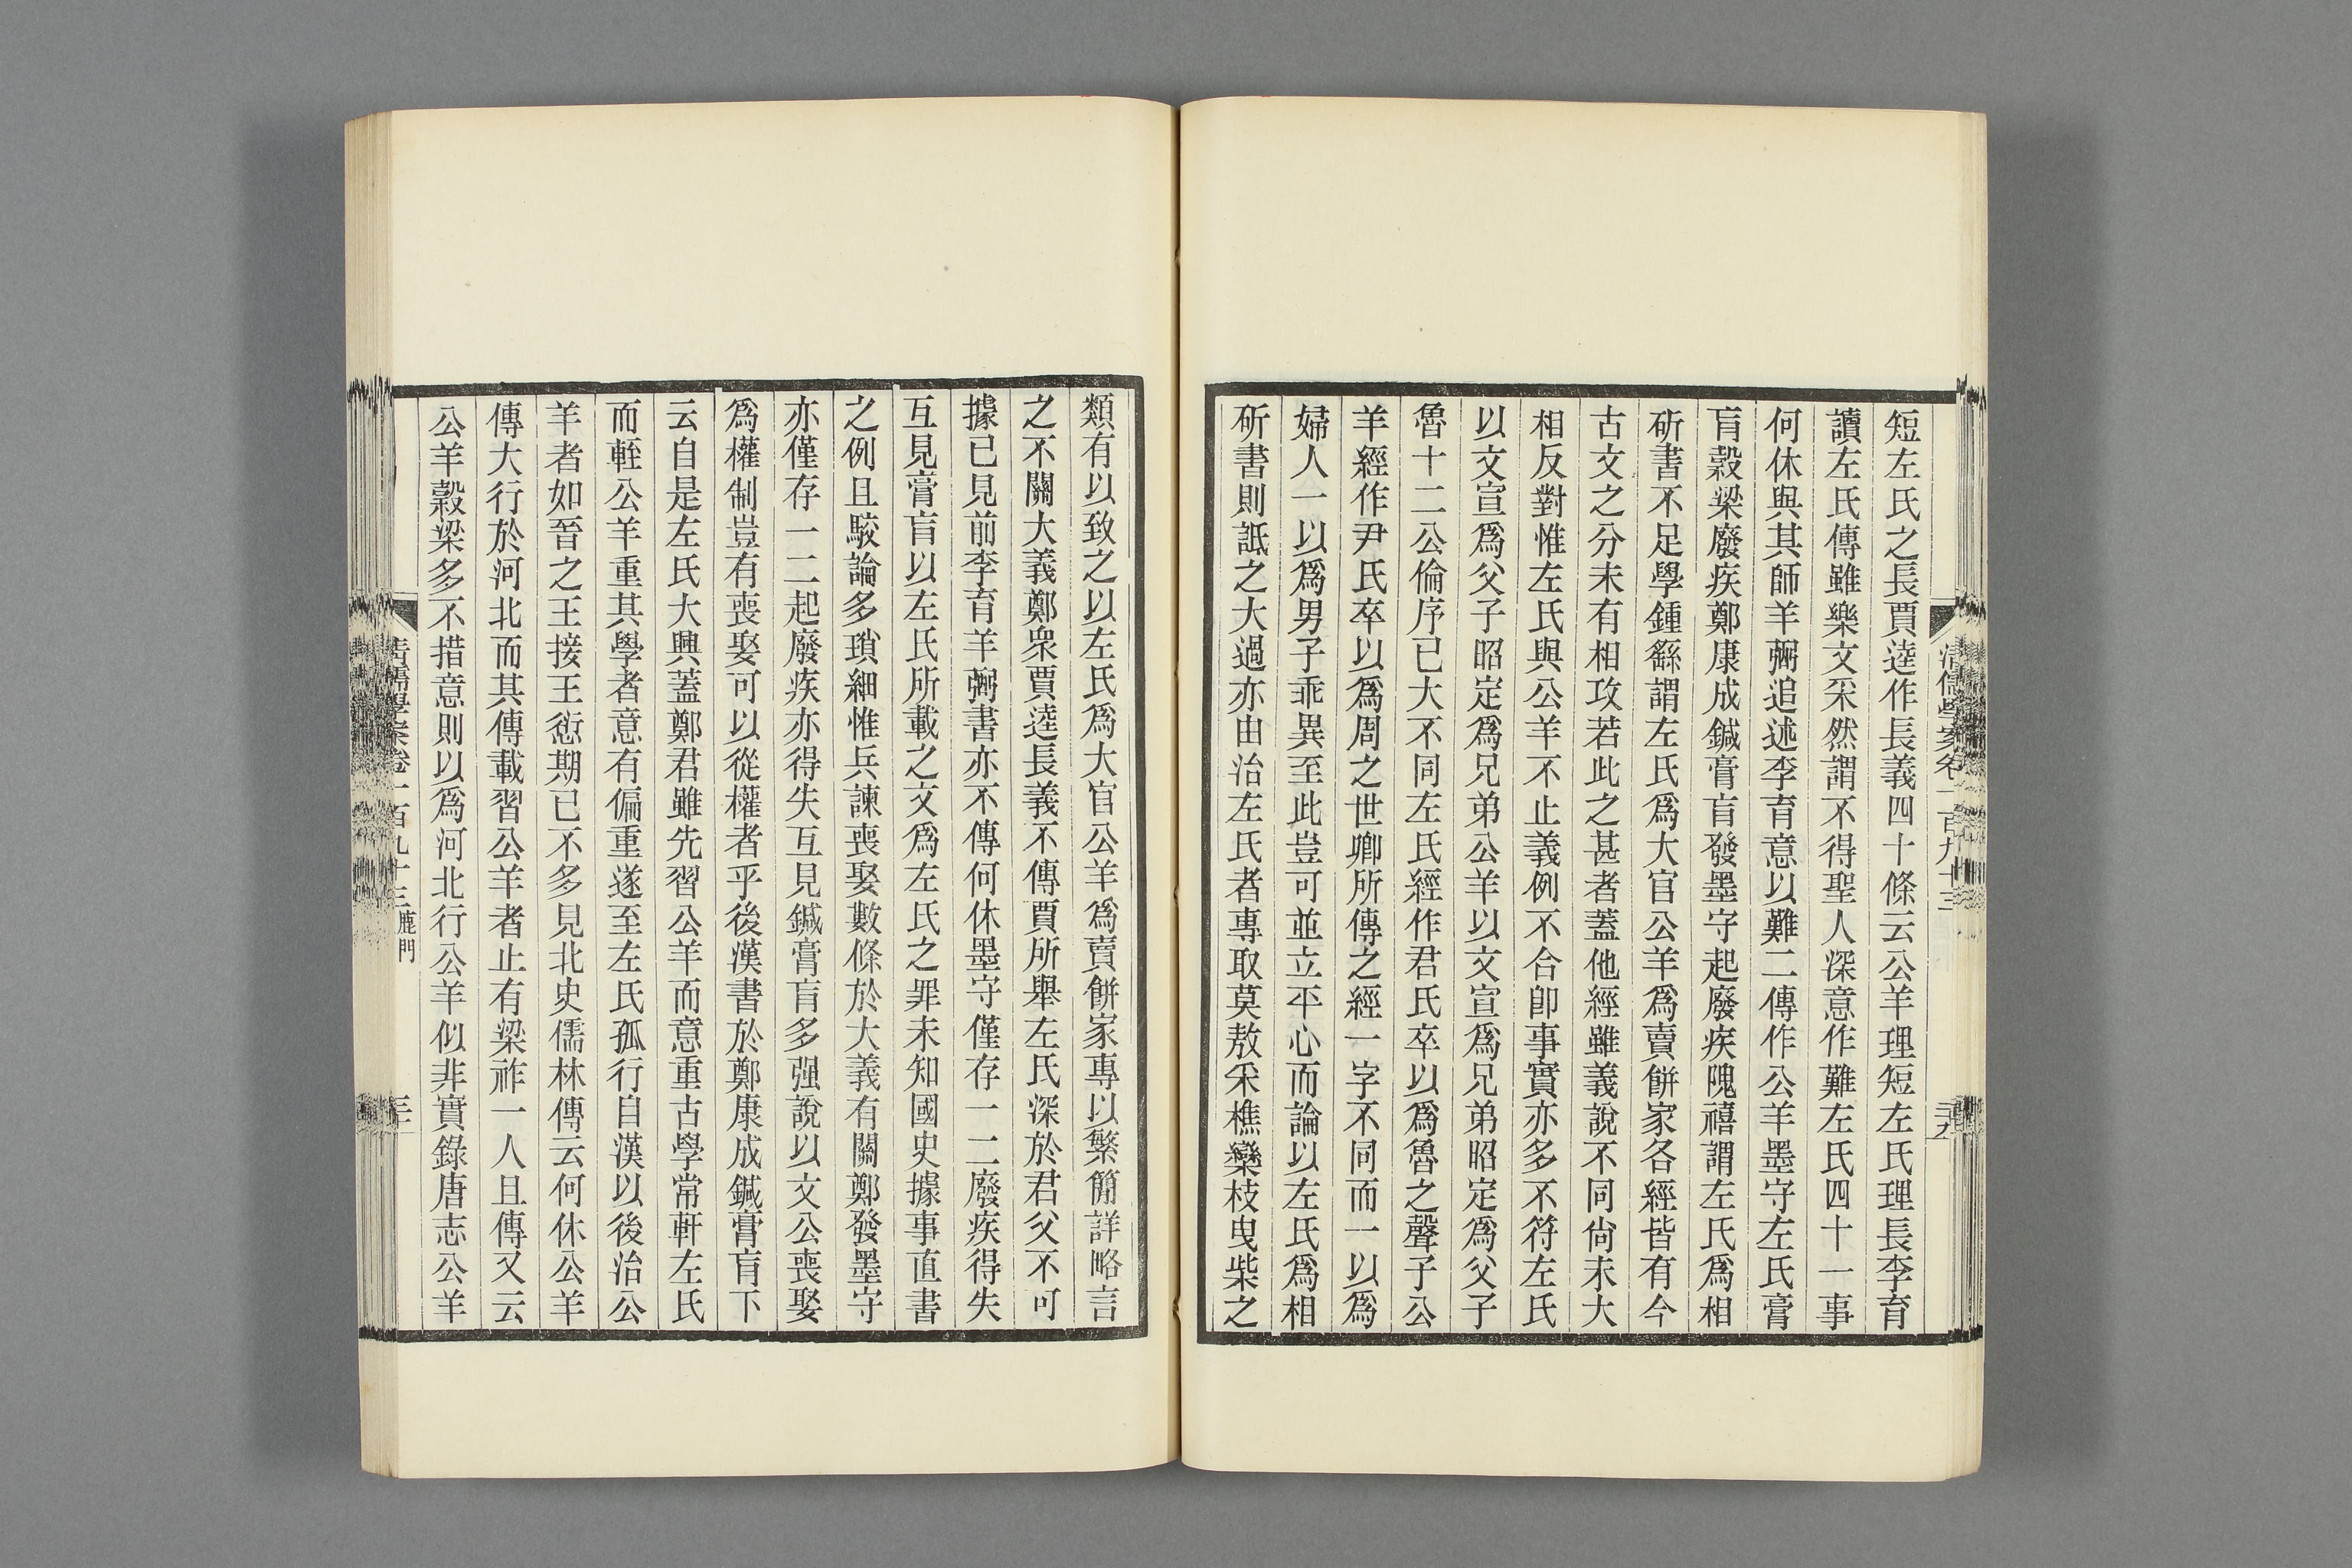 短左氏之長賈逵作長義四十條云公羊理短左氏理長李育
讀左氏傳雖樂文采然謂不得聖人深意作難左氏四十一事
何休與其師羊弼追述李育意以難二傳作公羊墨守左氏膏
肓穀梁廢疾鄭康成鍼膏肓發墨守起廢疾隗禧謂左氏爲相
斫書不足學鍾繇謂左氏爲大官公羊爲賣餅家各經皆有今
古文之分未有相攻若此之甚者蓋他經雖義說不同尙未大
相反對惟左氏與公羊不止義例不合卽事實亦多不符左氏
以文宣爲父子昭定爲兄弟公羊以文宣爲兄弟昭定爲父子
魯十二公倫序已大不同左氏經作君氏卒以爲魯之聲子公
羊經作尹氏卒以爲周之世卿所傳之經一字不同而一以爲
婦人一以爲男子乖異至此豈可並立平心而論以左氏爲相
斫書則詆之大過亦由治左氏者專取莫敖采樵欒枝曳柴之
清儒學案卷一百九十三
類有以致之以左氏爲大官公羊爲賣餅家專以繁簡詳略言
之不關大義鄭衆賈逵長義不傳賈所舉左氏深於君父不可
據已見前李育羊弼書亦不傳何休墨守僅存一二廢疾得失
互見膏肓以左氏所載之文爲左氏之罪未知國史據事直書
之例且駮論多瑣細惟兵諫喪娶數條於大義有關鄭發墨守
亦僅存一二起廢疾亦得失互見鍼膏肓多强說以文公喪娶
爲權制豈有喪娶可以從權者乎後漢書於鄭康成鍼膏肓下
云自是左氏大興蓋鄭君雖先習公羊而意重古學常軒左氏
而輊公羊重其學者意有偏重遂至左氏孤行自漢以後治公
羊者如晉之王接王愆期已不多見北史儒林傳云何休公羊
傳大行於河北而其傳載習公羊者止有梁祚一人且傳又云
公羊穀梁多不措意則以爲河北行公羊似非實錄唐志公羊
清儒學案卷一百九十三 鹿門